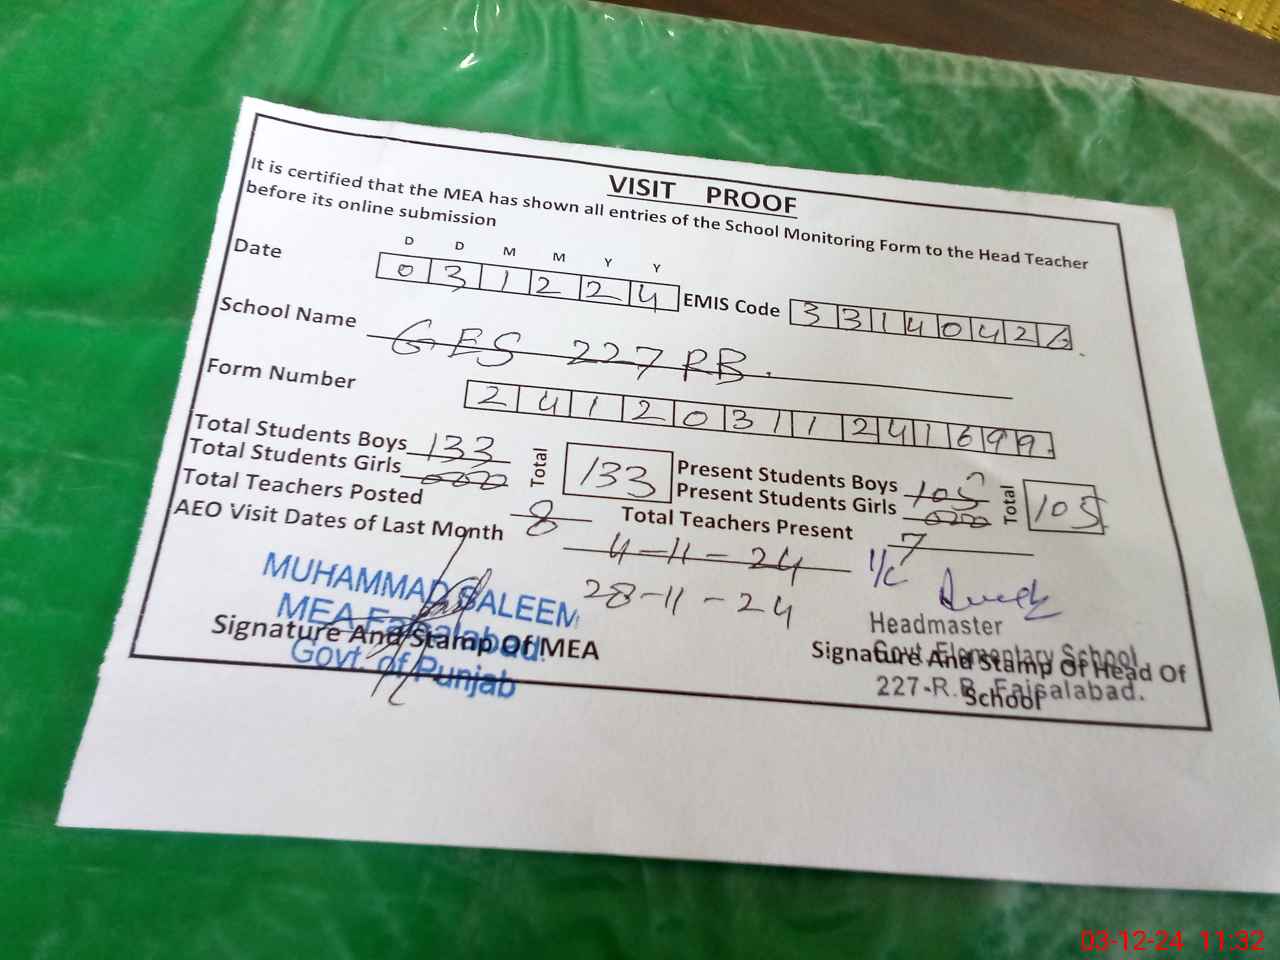 VISIT PROOF
It is certified that the MEA has shown all entries of the School Monitoring Form to the Head Teacher
before its online submission
D D M M Y Y
Date 0 3 1 2 2 4 EMIS Code 3 3 1 4 0 4 2 6
School Name GES 227 RB.
Form Number 2 4 1 2 0 3 1 1 2 4 1 6 9 9
Total Students Boys 133 Total 133 Present Students Boys 105 Total 105
Total Students Girls 000 Present Students Girls 000
Total Teachers Posted 8 Total Teachers Present 7
AEO Visit Dates of Last Month 4-11-24
28-11-24
I/C
MUHAMMAD SALEEM
MEA Faisalabad.
Govt. of Punjab
Signature And Stamp Of MEA
Headmaster
Govt. Elementary School
227-R.B. Faisalabad.
Signature And Stamp Of Head Of
School
03-12-24 11:32